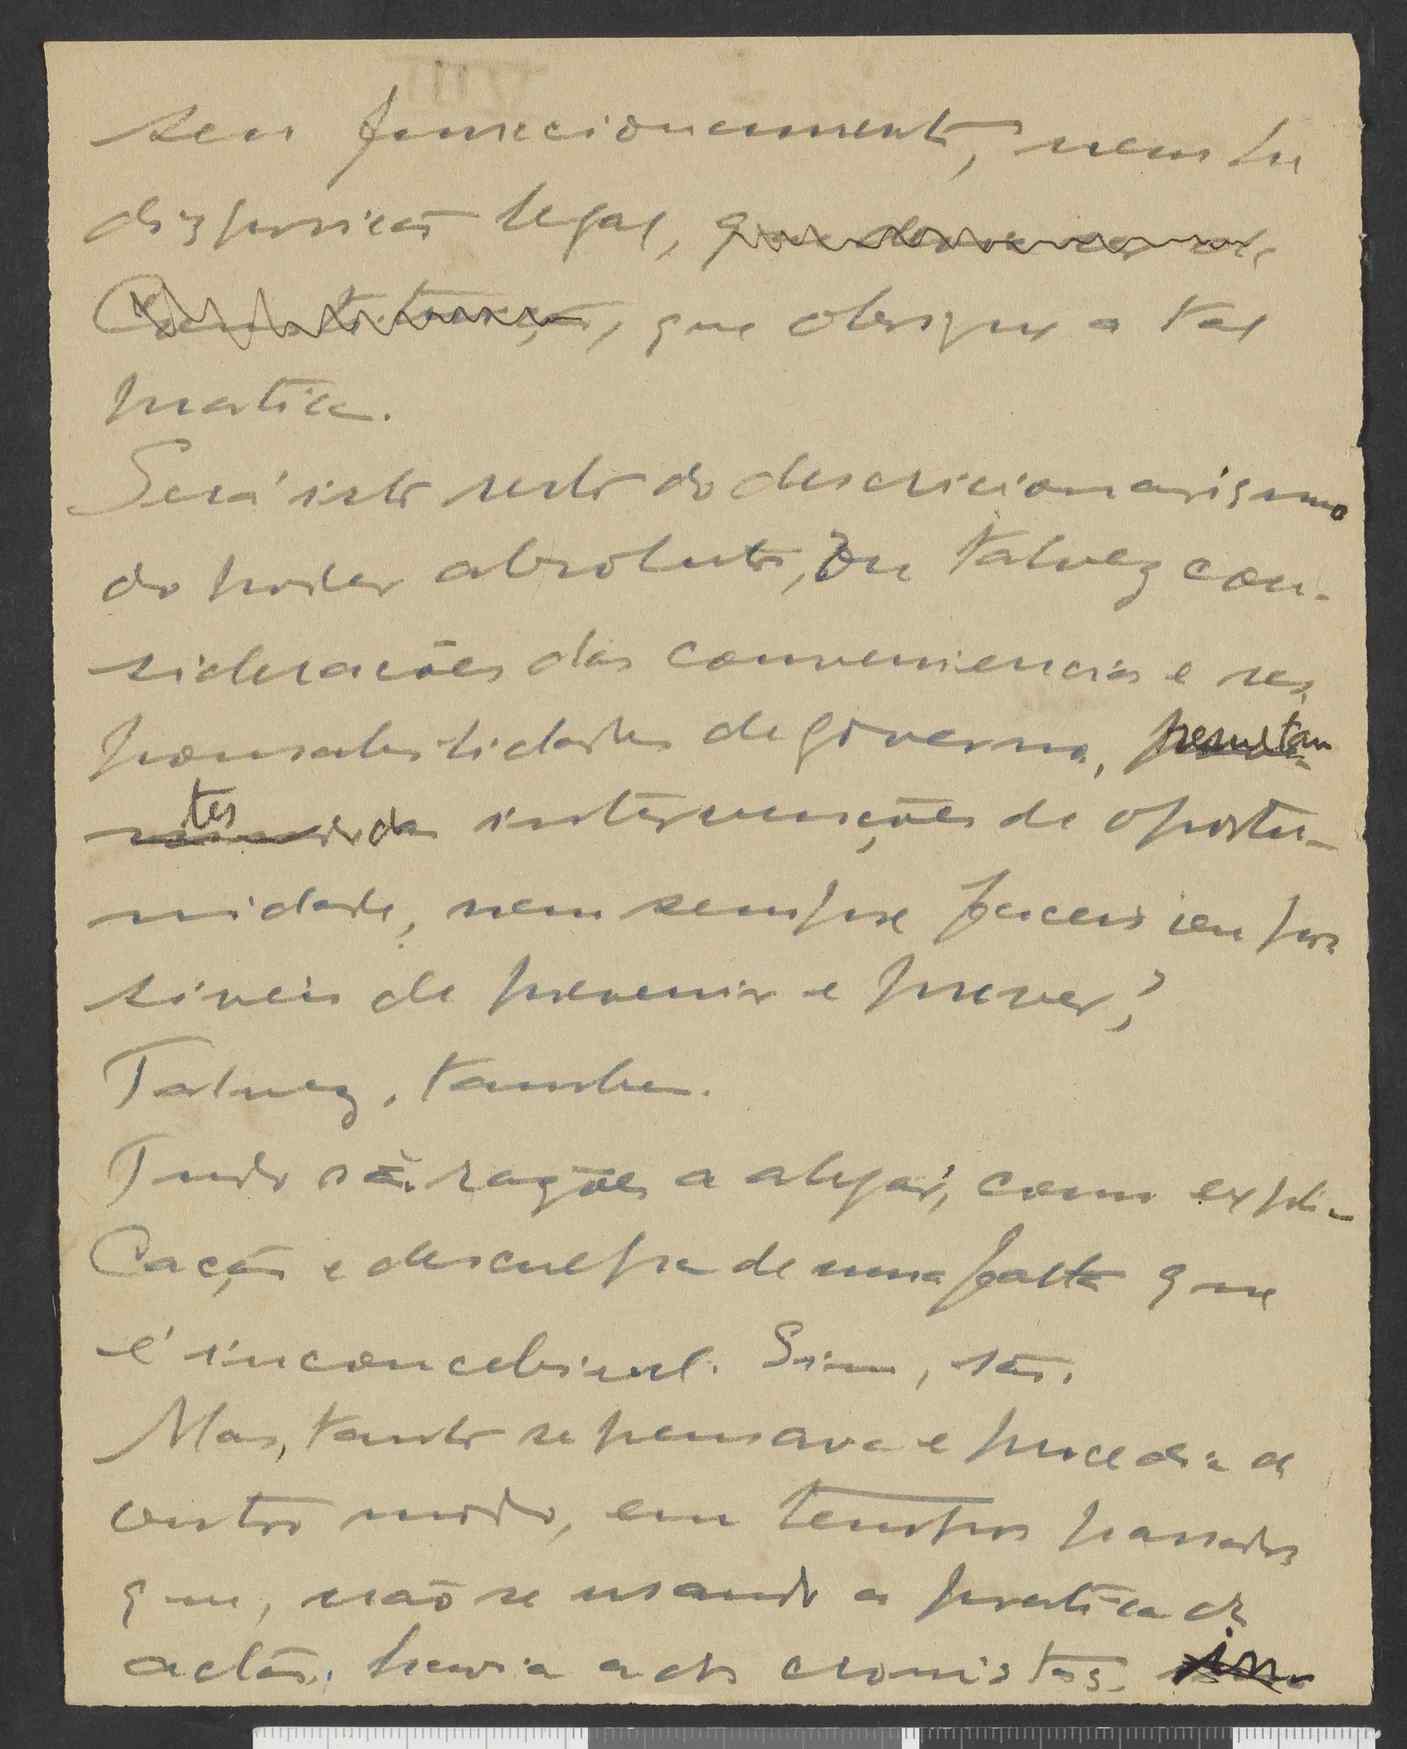 seu funccionamento, nem ha
disposição legal, que
Constituição, que obrigue a tal
pratica.
Será isto resto do descricionarismo
do poder absoluto, Ou talvez con-
siderações das conveniencias e res
ponsabilidades de governo, resultan
tes das intervenções de oportu-
nidade, nem sempre faceis ou pos
siveis de prevenir e prever?
Talvez, tambem.
Tudo são razões a alegar, como expli-
cação e desculpa de uma falta que
é inconcebivel. Sim, são.
Mas, tanto se pensava e procedia de
outro modo, em tempos passados
que, não se usando a pratica de
actas, havia a dos cronistas.